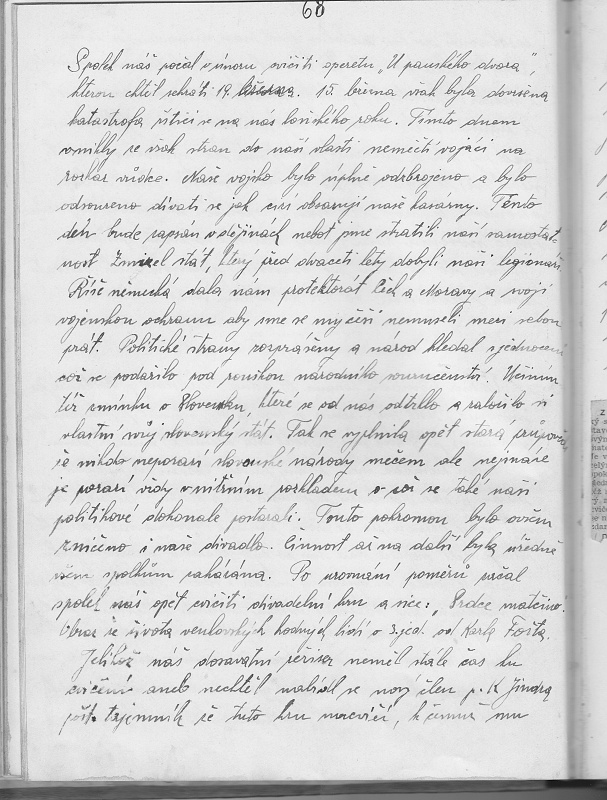 68
Spolek náš počal v únoru cvičiti operetu „U panského dvora",
kterou chtěl sehráti 19. března. 15. března však byla dovršena
katastrofa řítící se na nás loňského roku. Tímto dnem
vnikly se všech stran do naší vlasti němečtí vojáci na
rozkaz vůdce. Naše vojsko bylo úplně odzbrojeno a bylo
odsouzeno dívati se jak cizí obsazují naše kasárny. Tento
den bude zapsán v dějinách neboť jsme stratili naší samostat-
nost. Zmizel stát, který před dvaceti lety dobyli naši legionáři.
Říše německá dala nám protektorát Čech a Moravy a svojí
vojenskou ochranu aby sme se my češi nemuseli mezi sebou
prát. Politické strany rozprášeny a národ hledal sjednocení
což se podařilo pod rouškou národního souručenství. Učiním
též zmínku o Slovensku, které se od nás odtrhlo a založilo si
vlastní svůj slovenský stát. Tak se vyplnila opět stará
že nikdo neporazí slovanské národy mečem ale nejsnáze
je porazí vždy vnitřním rozkladem o což se také naši
politikové dokonale postarali. Touto pohromou bylo ovšem
zničeno i naše divadlo. Činnost až na další byla úředně
všem spolkům zakázána. Po urovnání poměrů začal
spolek náš opět cvičiti divadelní hru a sice: „Srdce matčino.
Obraz ze života venkovských hodných lidí o 3. jed. od Karla Fořta.
Jelikož náš dosavatní režiser neměl stále čas ku
cvičení aneb nechtěl nabídl se nový člen p. K Jindra
pošt. tajemník že tuto hru nacvičí, k čemuž mu